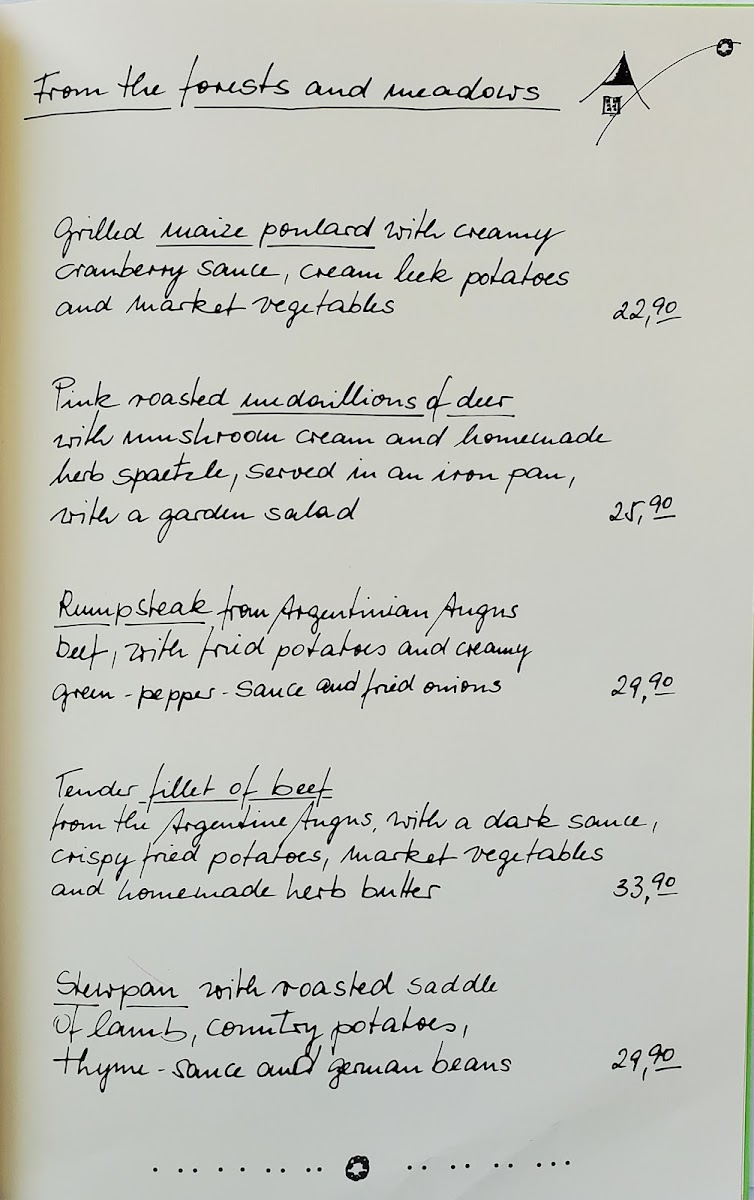 From the forests and meadows
Grilled maize poulard with creamy
cranberry sauce, cream leek potatoes
and market vegetables 22,90
Pink roasted medaillions of deer
with mushroom cream and homemade
herb spaetzle, served in an iron pan,
with a garden salad 25,90
Rumpsteak from Argentinian Angus
beef, with fried potatoes and creamy
green-pepper-sauce and fried onions 29,90
Tender fillet of beef
from the Argentine Angus, with a dark sauce,
crispy fried potatoes, market vegetables
and homemade herb butter 33,90
Stewpan with roasted saddle
of lamb, country potatoes,
thyme-sauce and german beans 29,90